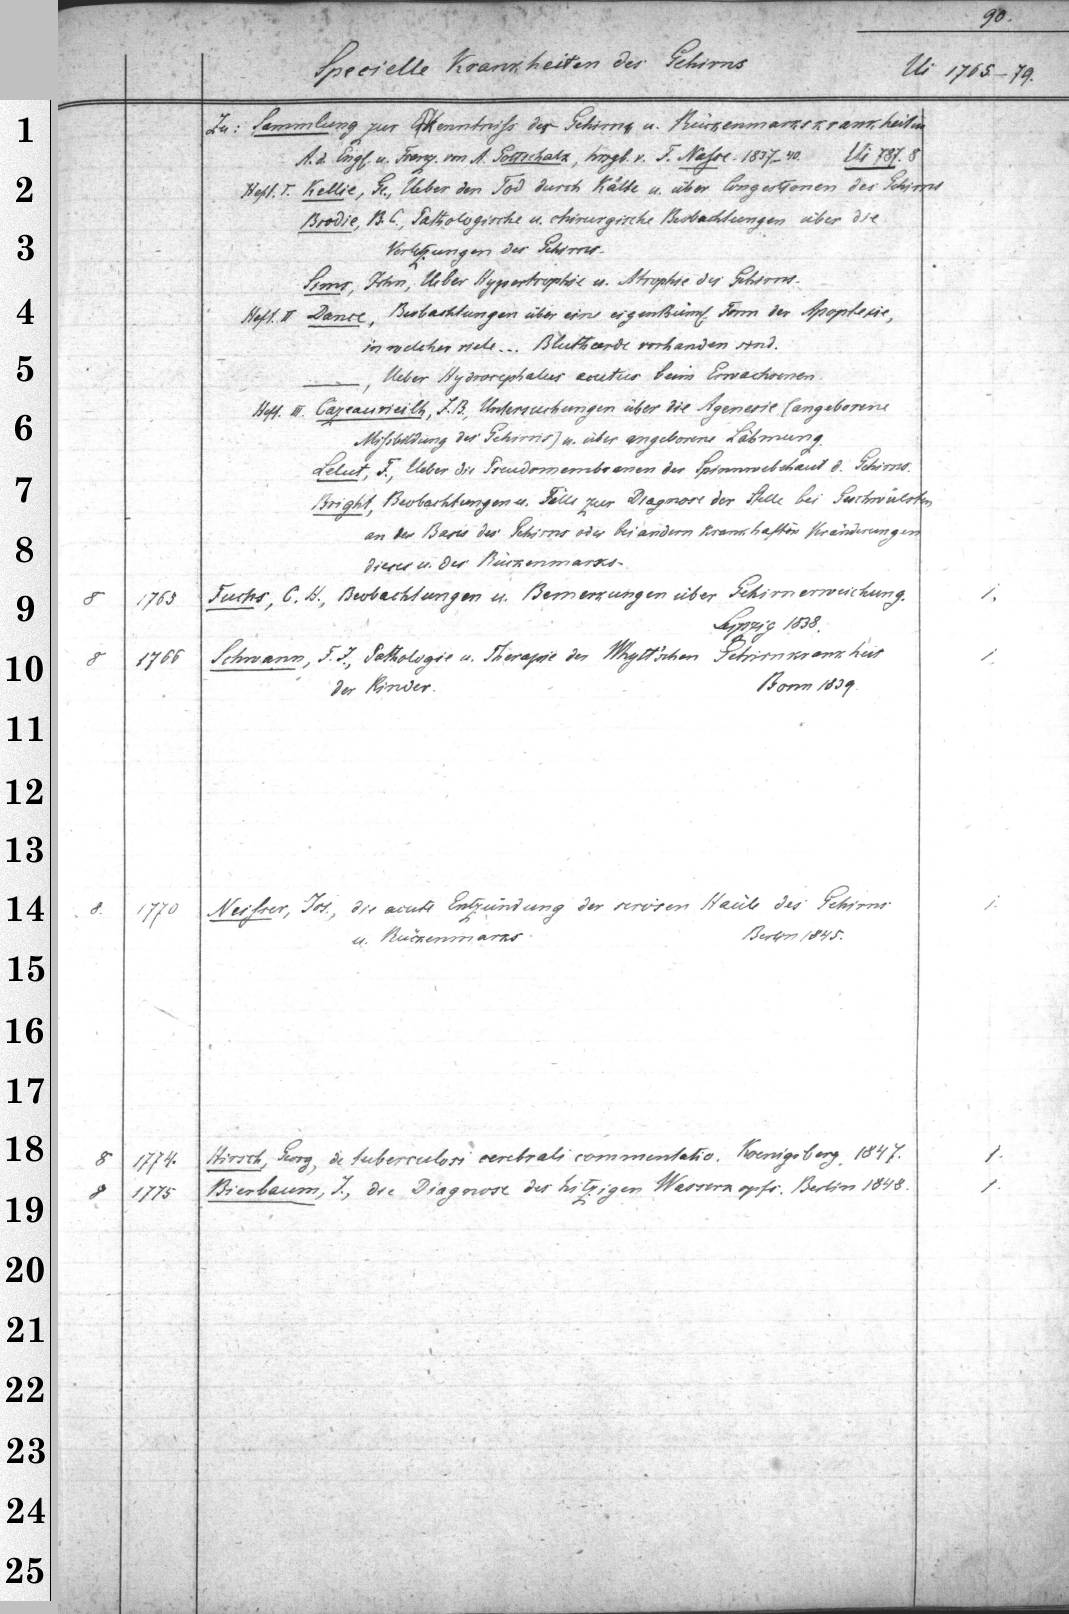 90.
Specielle Krankheiten des Gehirns Ui 1765-79.
1 Zu: Sammlung zur Kenntniss der Gehirns u. Rückenmarkskrankheiten
A. d. Engl. u. Franz. von A. Gottschalk, hrsgb. v. F. Nasse. 1837-40. Ui 787. 8
2 Heft. I. Kellie, Ge., Ueber den Tod durch Kälte u. über Congestionen des Gehirns
Brodie, B. C., Pathologische u. chirurgische Beobachtungen über die
3 Verletzungen des Gehirns.
Sims, John, Ueber Hypertrophie u. Atrophie des Gehirns.
4 Heft. II Dance, Beobachtungen über eine eigenthüml. Form der Apoplexie,
in welcher viele ... Blutheerde vorhanden sind.
5 ——, Ueber Hydrocephalus acutus beim Erwachsenen.
6 Heft. III. Cazeauvieilh, J. B., Untersuchungen über die Agenesie (angeborene
Missbildung des Gehirns) u. über angeborene Lähmung.
Lelut, F., Ueber die Pseudomembranen der Spinnwebehaut d. Gehirns.
7 Bright, Beobachtungen u. Fälle zur Diagnose der Stelle bei Geschwülsten
8 an der Basis des Gehirns oder bei andern krankhaften Veränderungen
dieses u. des Rückenmarks.
9 8 1765 Fuchs, C. H., Beobachtungen u. Bemerkungen über Gehirnerweichung. 1.
Leipzig 1838.
10 8 1766 Schwann, F. J., Pathologie u. Therapie der Whytt'schen Gehirnkrankheit 1.
der Kinder. Bonn 1839.
11
12
13
14 8. 1770 Neisser, Jos., die acute Entzündung der serösen Häute des Gehirns 1.
u. Rückenmarks. Berlin 1845.
15
16
17
18 8 1774. Hirsch, Georg, de tuberculosi cerebrali commentatio. Koenigsberg. 1847. 1.
8 1775 Bierbaum, J., die Diagnose des hitzigen Wasserkopfs. Berlin 1848. 1.
19
20
21
22
23
24
25